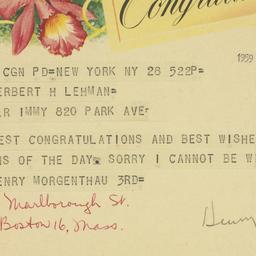 Congratu
1959
CGN PD=NEW YORK NY 28 522P=
ERBERT H LEHMAN=
R IMMY 820 PARK AVE=
EST CONGRATULATIONS AND BEST WISHE
NS OF THE DAY. SORRY I CANNOT BE WI
ENRY MORGENTHAU 3RD=
Marlborough St.
Boston 16, Mass.
Henry